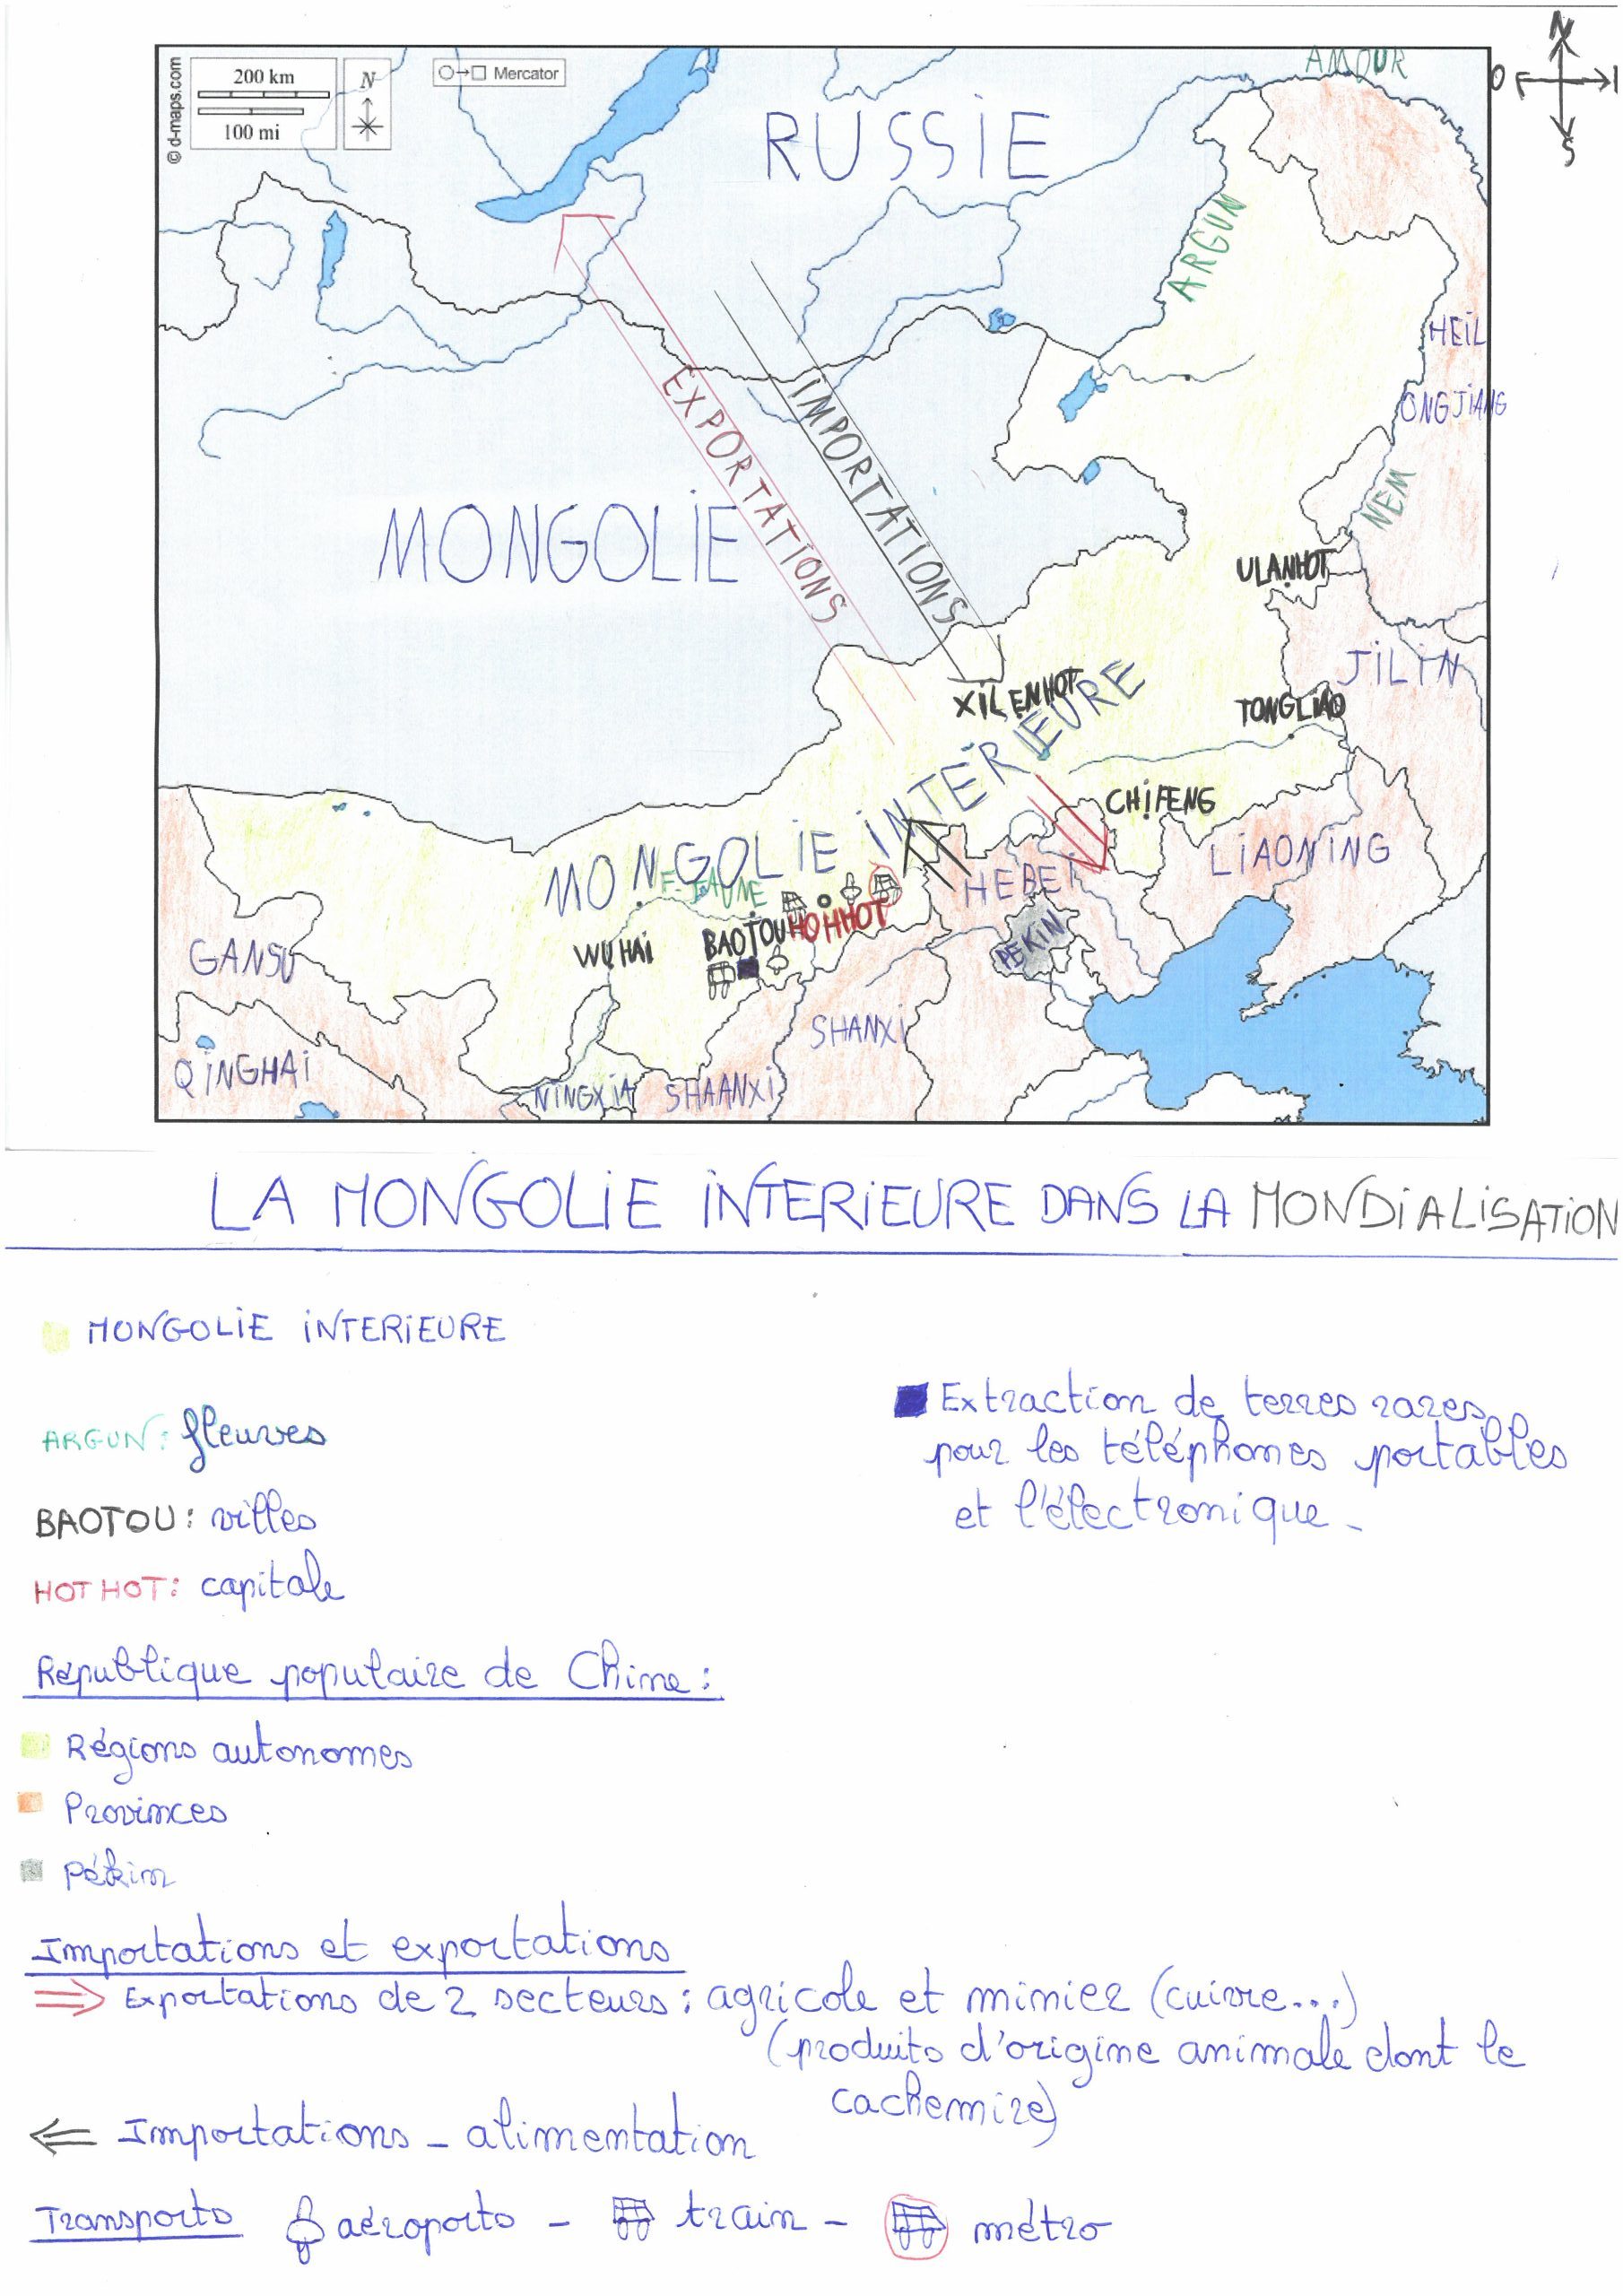 © d-maps.com
200 km
100 mi
N
Mercator
N
O
S
AMOUR
RUSSIE
ARGUN
HEIL
ONGJIANG
EXPORTATIONS
IMPORTATIONS
NEM
MONGOLIE
ULANHOT
JILIN
XILENHOT
TONGLIAO
MONGOLIE INTERIEURE
CHIFENG
LIAONING
HEBEI
F. JAUNE
HOHHOT
BAOTOU
WUHAI
PEKIN
GANSU
SHANXI
QINGHAI
NINGXIA
SHAANXI
LA MONGOLIE INTERIEURE DANS LA MONDIALISATION
MONGOLIE INTERIEURE
Extraction de terres rares
pour les téléphones portables
et l'électronique -
ARGUN: fleuves
BAOTOU: villes
HOTHOT: capitale
République populaire de Chine:
Régions autonomes
Provinces
Pékin
Importations et exportations
Exportations de 2 secteurs: agricole et minier (cuivre...)
(produits d'origine animale dont le
cachemire)
Importations - alimentation
Transports aéroports - train - métro